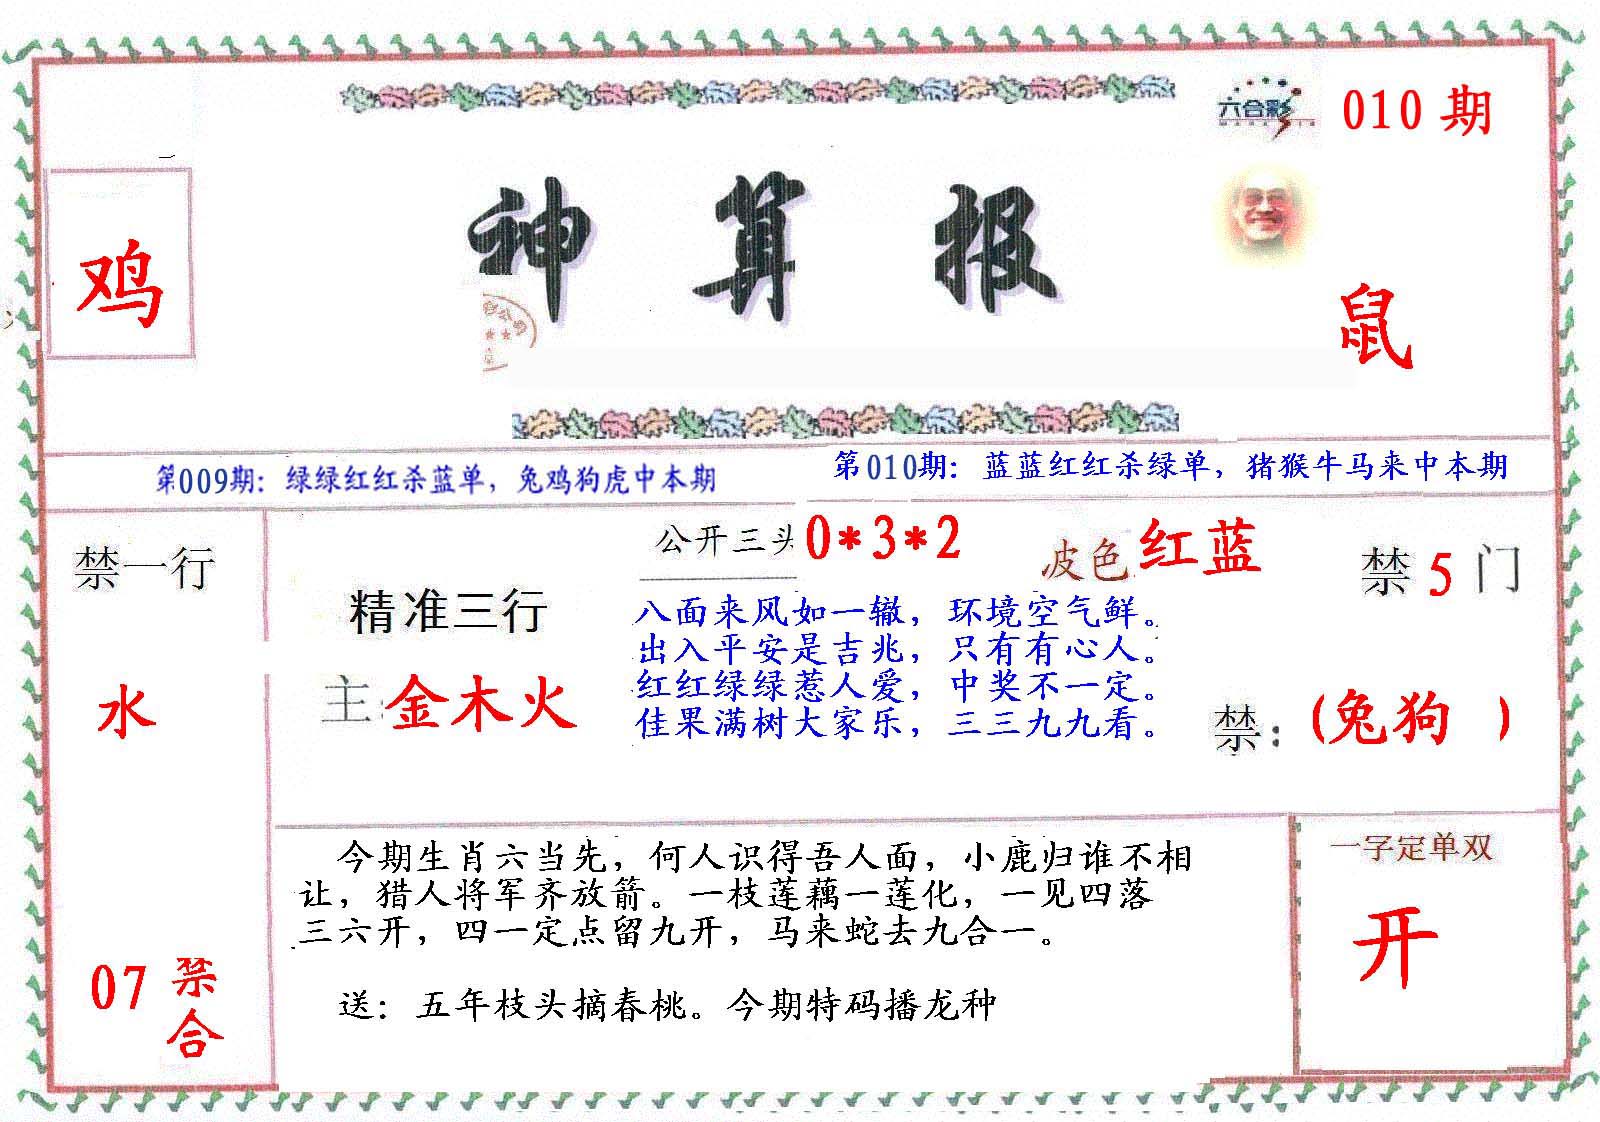 六合彩
010期
鸡
神算报
鼠
第009期：绿绿红红杀蓝单，兔鸡狗虎中本期
第010期：蓝蓝红红杀绿单，猪猴牛马来中本期
禁一行
水
07禁
合
精准三行
主:金木火
公开三头 0*3*2
波色 红蓝
八面来风如一辙，环境空气鲜。
出入平安是吉兆，只有有心人。
红红绿绿惹人爱，中奖不一定。
佳果满树大家乐，三三九九看。
禁 5 门
禁：(兔狗 )
今期生肖六当先，何人识得吾人面，小鹿归谁不相
让，猎人将军齐放箭。一枝莲藕一莲化，一见四落
三六开，四一定点留九开，马来蛇去九合一。
送：五年枝头摘春桃。今期特码播龙种
一字定单双
开